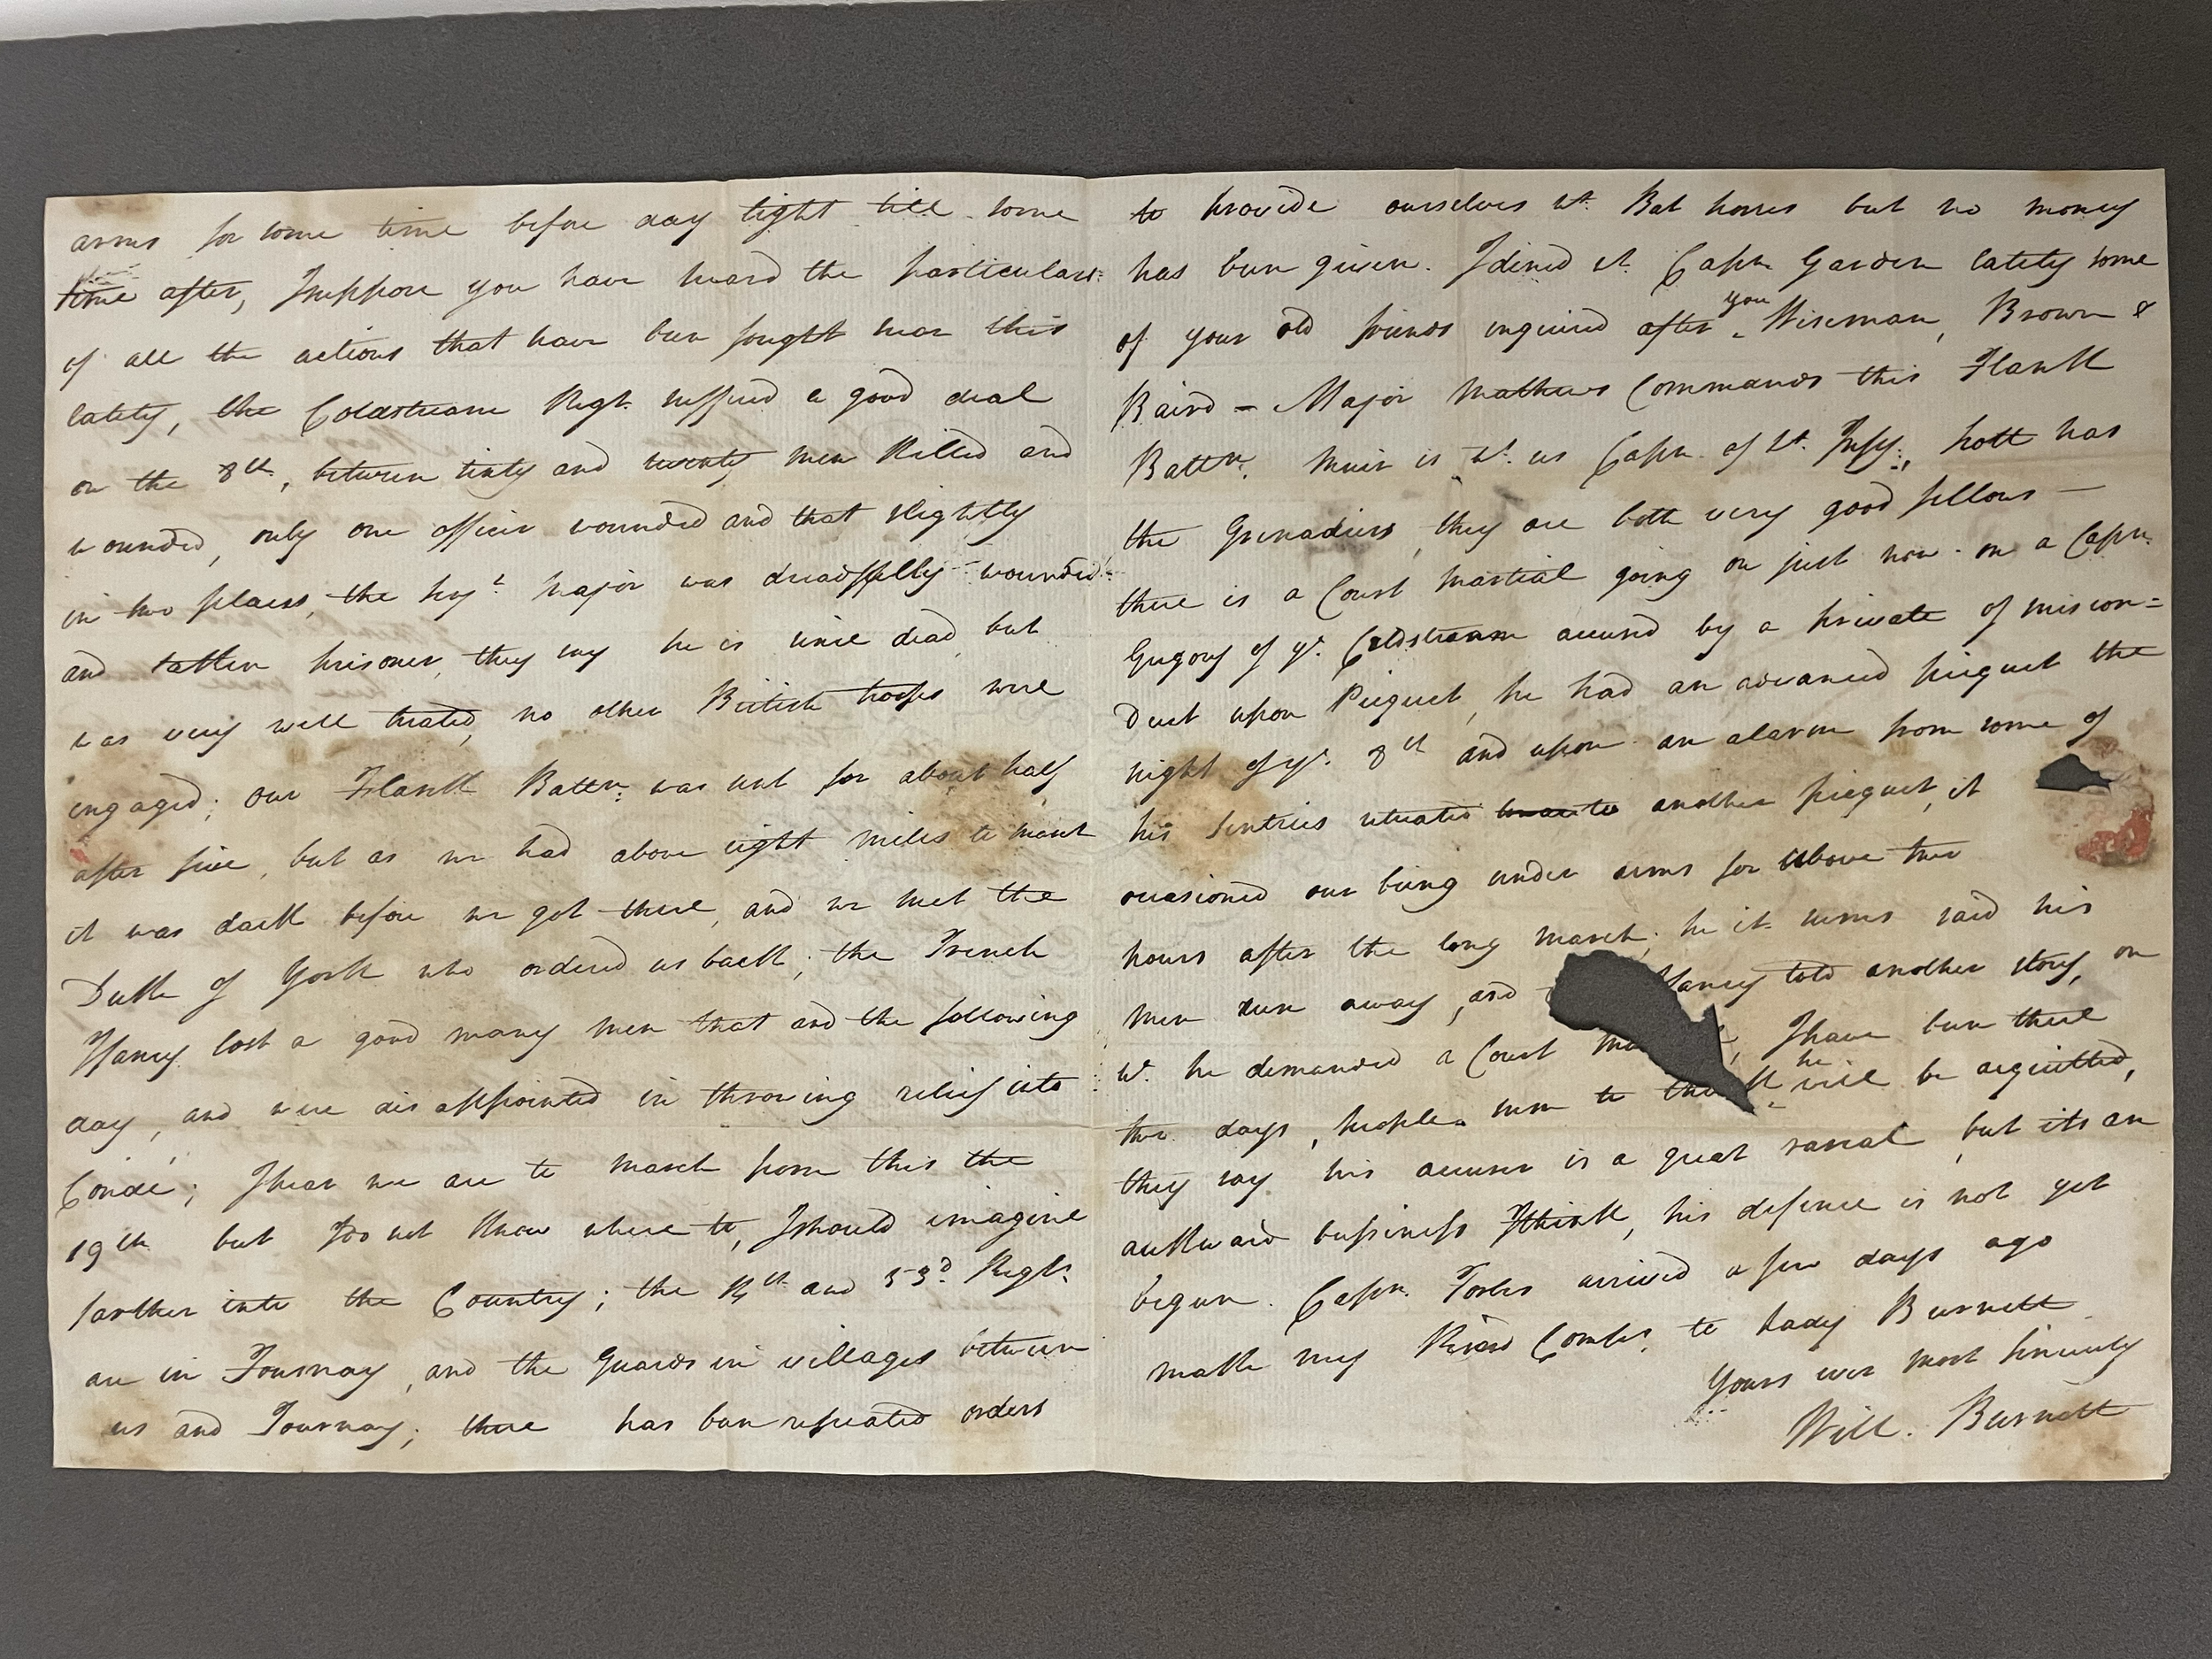 arms for some time before day light till some
time after, I suppose you have heard the particulars
of all the actions that have been fought near this
lately, the Coldstream Regt. suffered a good deal
on the 8th, between sixty and seventy men killed and
wounded, only one officer wounded and that slightly
in two places, the Sergt. Major was dreadfully wounded
and taken prisoner, they say he is since dead, but
was very well treated, no other British troops were
engaged; our Flank Battn. was sent for about half
after five, but as we had above eight miles to march
it was dark before we got there, and we met the
Duke of York who ordered us back; the French
Harry lost a good many men that and the following
day, and were disappointed in throwing relief into
Condé; I hear we are to march from this the
19th but I do not know where to, I should imagine
farther into the Country; the 14th and 53d. Regts.
are in Tournay, and the Guards in villages between
us and Tournay; there has been repeated orders
to provide ourselves wt. Bat horses but no money
has been given. I dined wt. Capn. Garden lately some
of your old friends enquired after you, Wiseman, Brown &
Baird - Major Mathews Commands this Flank
Battn. Muir is wt. us Capn. of Lt. Infy., Scott has
the Grenadiers, they are both very good fellows —
there is a Court Martial going on just now on a Capn.
Gregory of ye. Coldstream accused by a private of miscon=
duct upon Picquet, he had an advanced picquet the
night of ye. 8th and upon an alarm from some of
his Sentries situated to another picquet, it
occasioned our being under arms for above two
hours after the long march; he it seems said his
men run away, and Harry told another story, on
wt. he demanded a Court Ma , I have been there
two days, people seem to think he will be acquitted,
they say his accuser is a great rascal, but its an
aukward bussiness I think, his defence is not yet
begun. Capn. Forbes arrived a few days ago
make my kind Compts. to Lady Burnett
Yours ever most sincerely
Will. Burnett